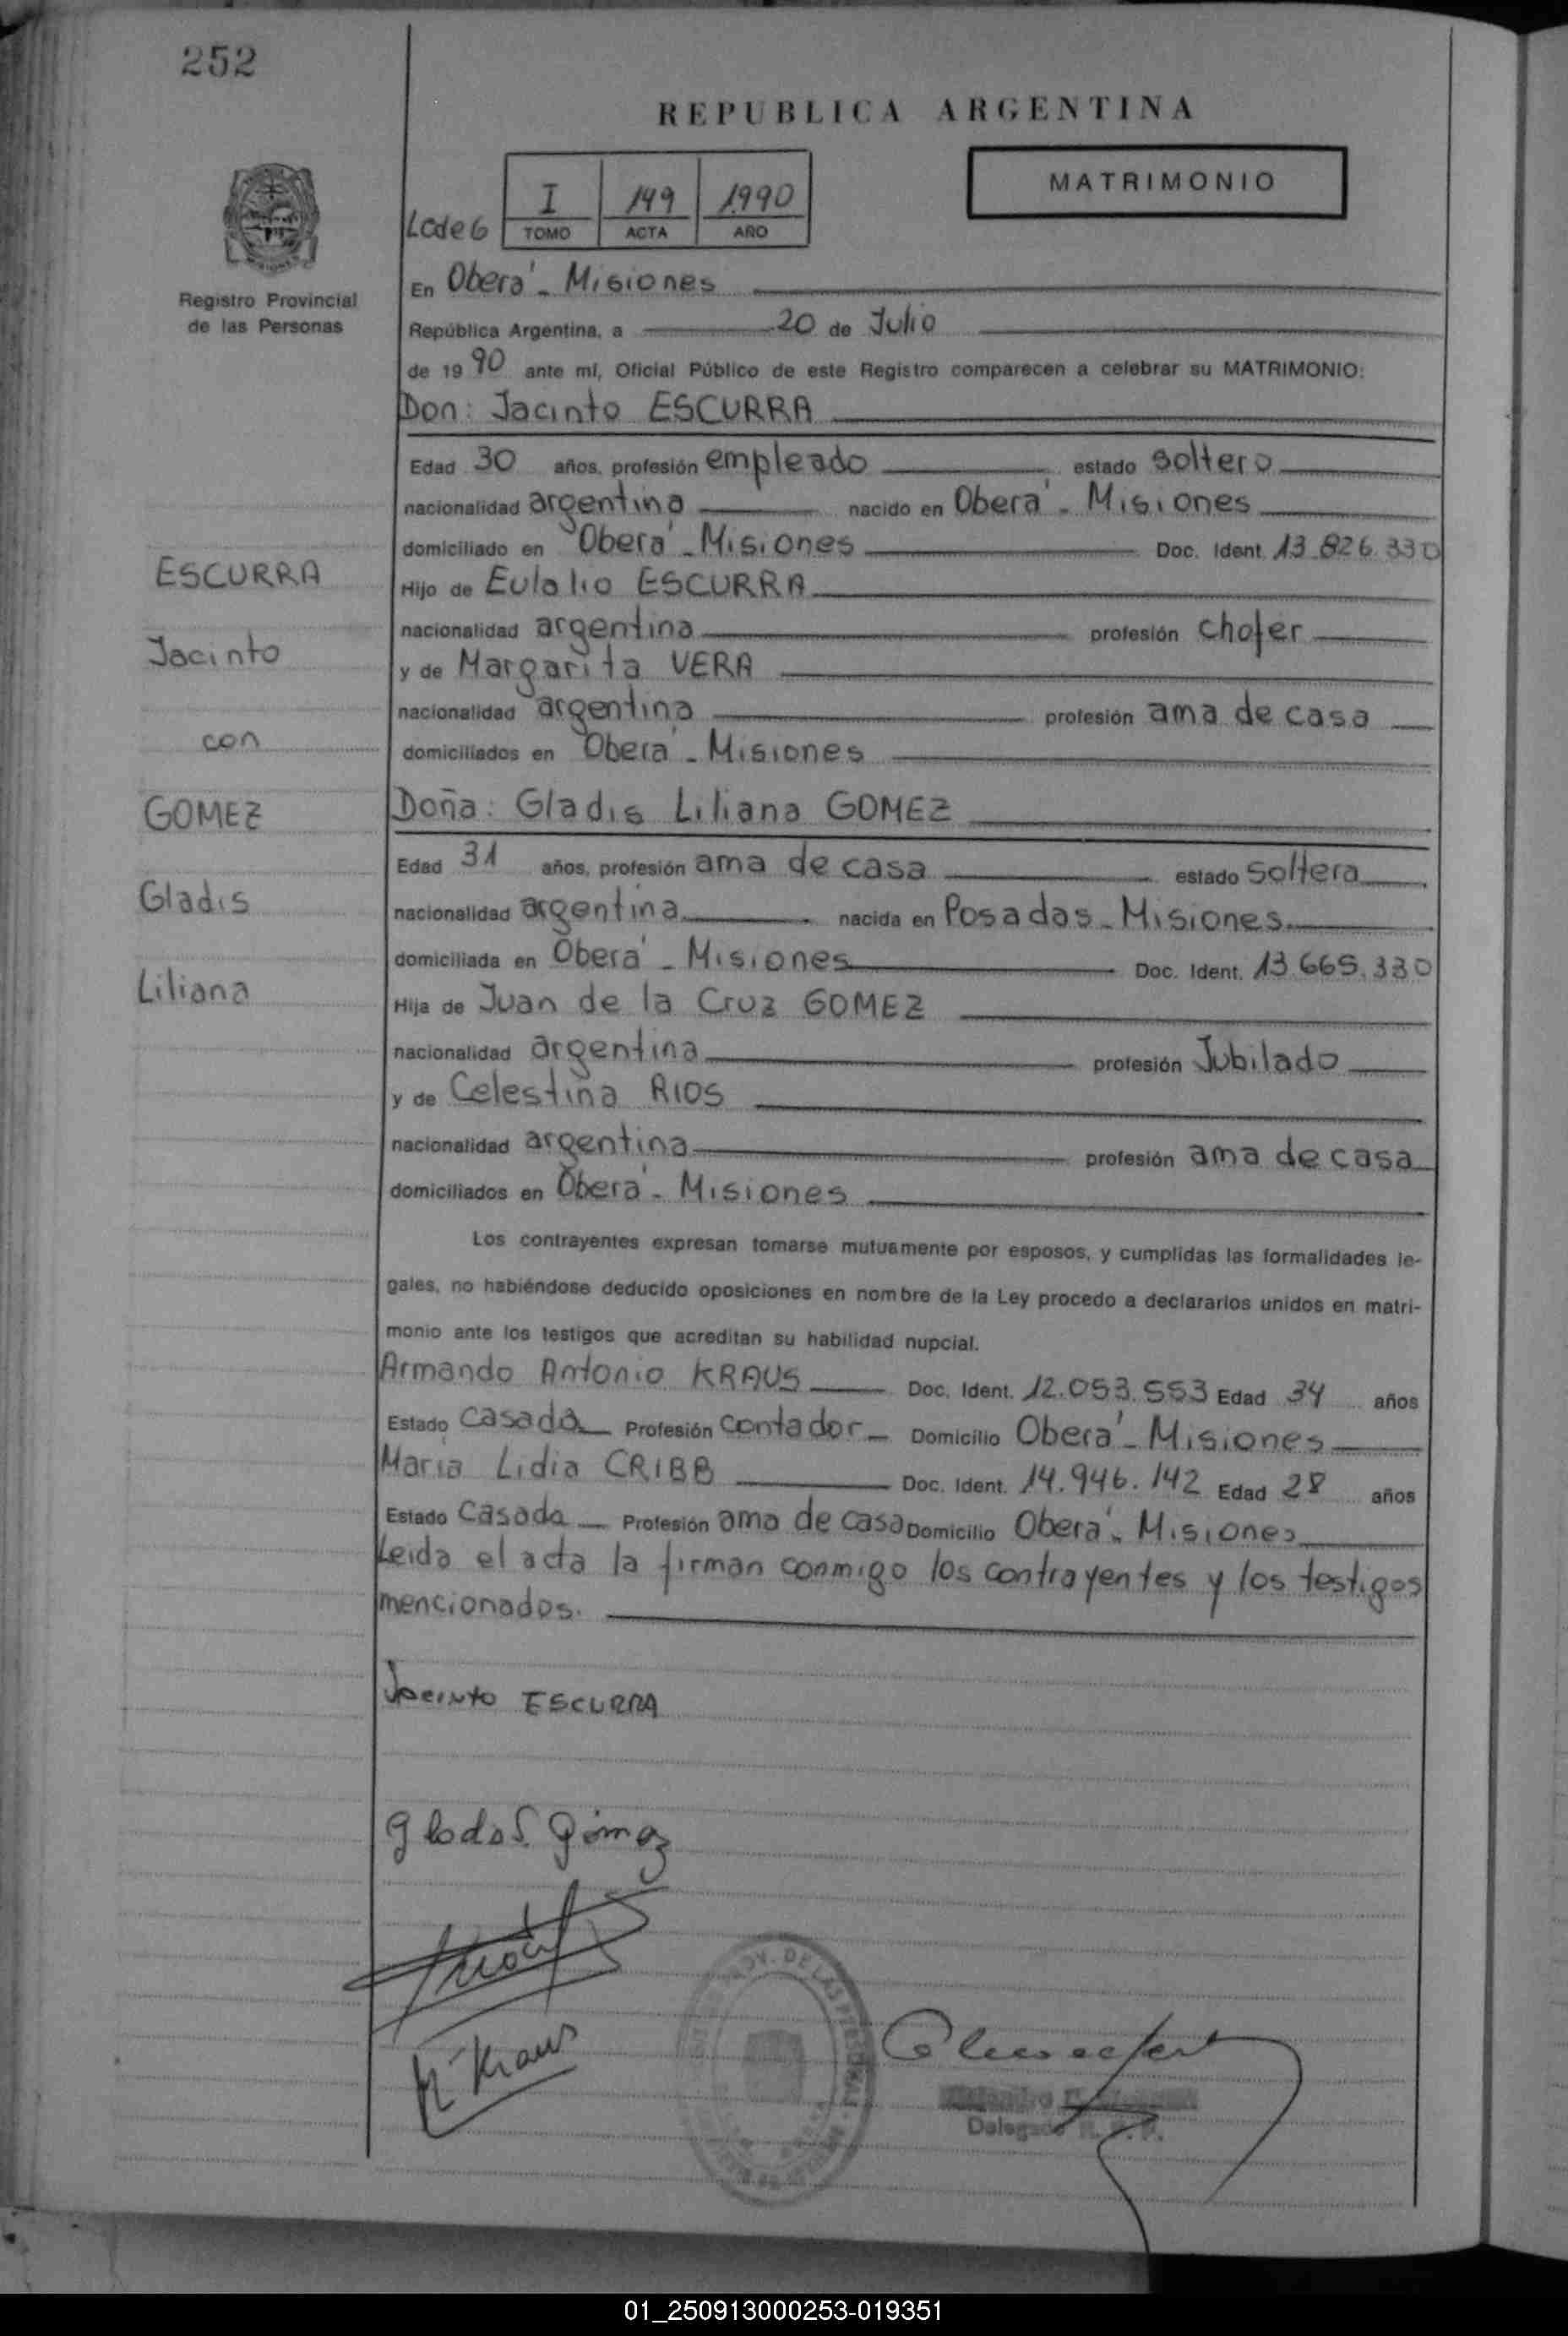 252
REPUBLICA ARGENTINA
MATRIMONIO
I 149 1990
Lcde6 TOMO ACTA AÑO
Registro Provincial
de las Personas
En Oberá - Misiones
República Argentina, a 20 de Julio
de 1990 ante mí, Oficial Público de este Registro comparecen a celebrar su MATRIMONIO:
Don: Jacinto ESCURRA
Edad 30 años, profesión empleado estado soltero
nacionalidad argentina nacido en Oberá - Misiones
domiciliado en Oberá - Misiones Doc. Ident. 13.826.330
Hijo de Eulalio ESCURRA
nacionalidad argentina profesión chofer
y de Margarita VERA
nacionalidad argentina profesión ama de casa
domiciliados en Oberá - Misiones
Doña: Gladis Liliana GOMEZ
Edad 31 años, profesión ama de casa estado soltera
nacionalidad argentina nacida en Posadas - Misiones
domiciliada en Oberá - Misiones Doc. Ident. 13.665.330
Hija de Juan de la Cruz GOMEZ
nacionalidad argentina profesión Jubilado
y de Celestina RIOS
nacionalidad argentina profesión ama de casa
domiciliados en Oberá - Misiones
ESCURRA
Jacinto
con
GOMEZ
Gladis
Liliana
Los contrayentes expresan tomarse mutuamente por esposos, y cumplidas las formalidades le-
gales, no habiéndose deducido oposiciones en nombre de la Ley procedo a declararlos unidos en matri-
monio ante los testigos que acreditan su habilidad nupcial.
Armando Antonio KRAUS Doc. Ident. 12.053.553 Edad 34 años
Estado casado Profesión contador Domicilio Oberá - Misiones
Maria Lidia CRIBB Doc. Ident. 14.946.142 Edad 28 años
Estado casada Profesión ama de casa Domicilio Oberá - Misiones
Leida el acta la firman conmigo los contrayentes y los testigos
mencionados.
Jacinto ESCURRA
Glados Gómez
Kraus
PROV. DE LAS PERSONAS
Delegado
01_250913000253-019351